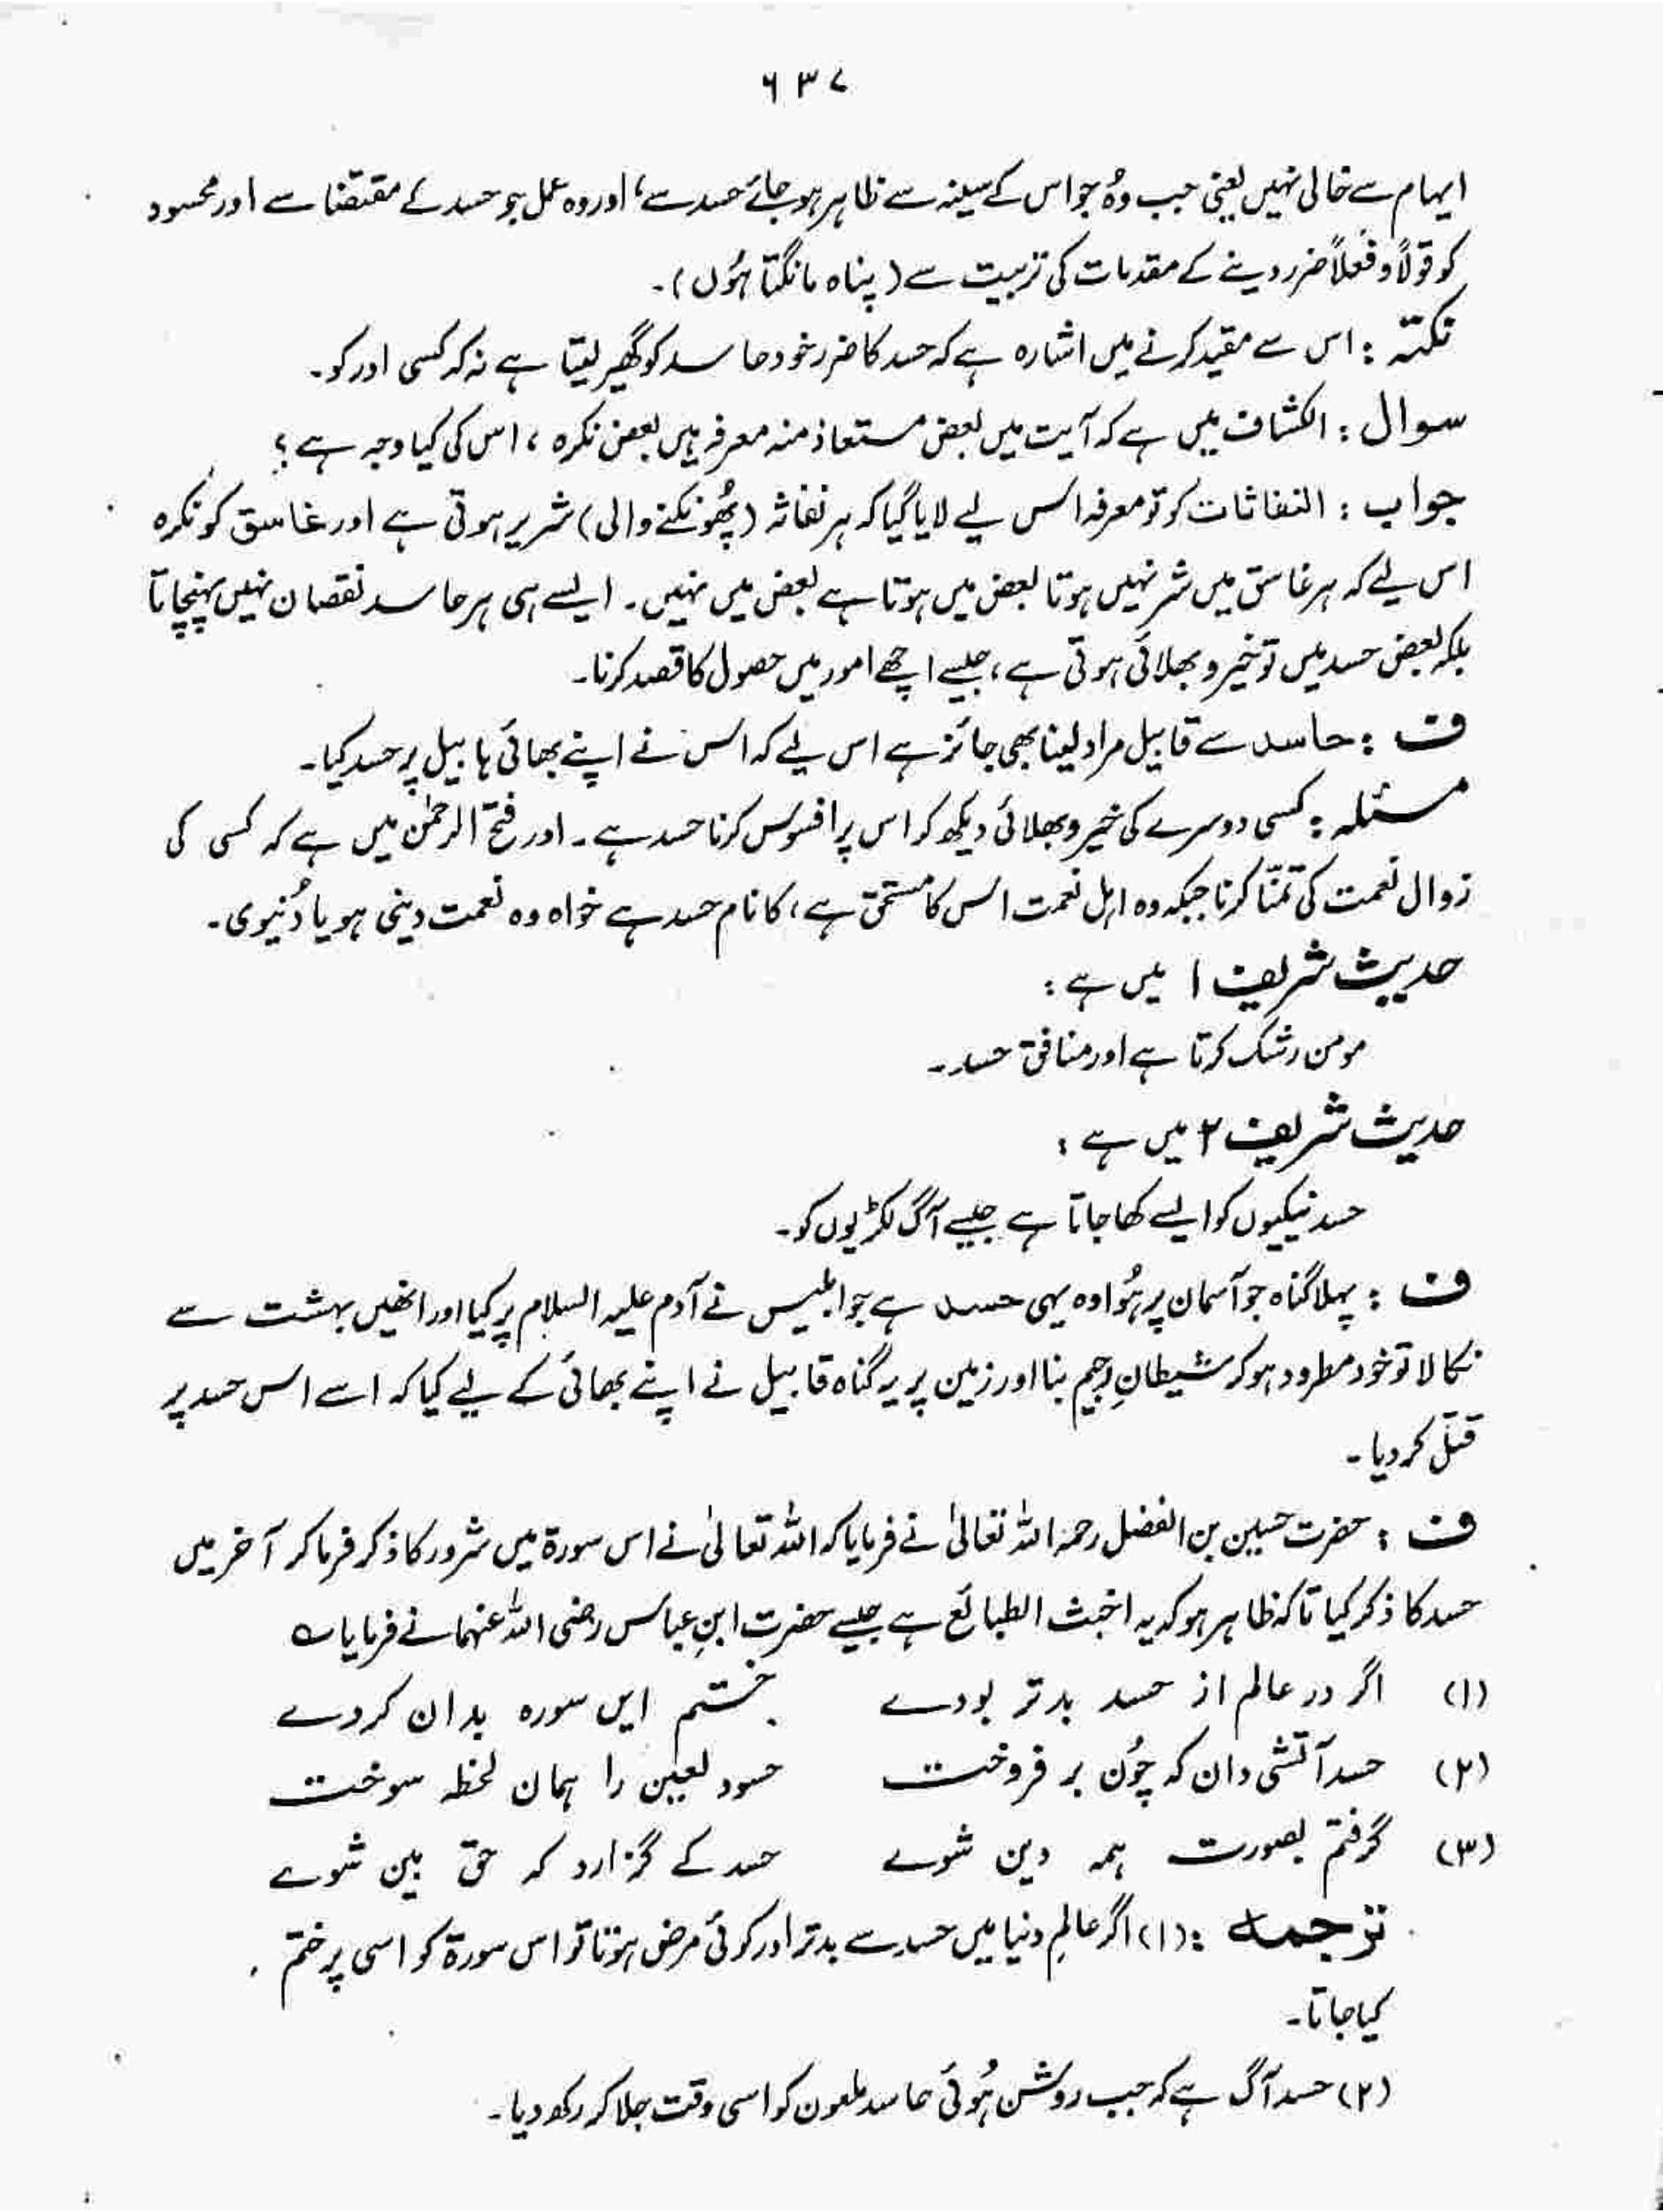 ۶۳۷
ایہام سے خالی نہیں یعنی جب وُہ جو اس کے سینہ سے ظاہر ہو جائے حسد سے، اور وہ عمل جو حسد کے مقتضا سے اور محسود
کو قولاً و فعلاً ضرر دینے کے مقدمات کی تربیت سے (پناہ مانگتا ہُوں)۔
نکتہ : اس سے مقید کرنے میں اشارہ ہے کہ حسد کا ضرر خود حاسد کو گھیر لیتا ہے نہ کہ کسی اور کو۔
سوال : الکشاف میں ہے کہ آیت میں بعض مستعاذ منہ معرفہ ہیں بعض نکرہ ، اس کی کیا وجہ ہے ؟
جواب : النفاثات کو تو معرفہ اس لیے لایا گیا کہ ہر نفاثہ (پُھونکنے والی) شریر ہوتی ہے اور غاسق کو نکرہ
اس لیے کہ ہر غاسق میں شر نہیں ہوتا بعض میں ہوتا ہے بعض میں نہیں۔ ایسے ہی ہر حاسد نقصان نہیں پہنچاتا
بلکہ بعض حسد میں تو خیر و بھلائی ہوتی ہے، جیسے اچھے امور میں حصول کا قصد کرنا۔
ف : حاسد سے قابیل مراد لینا بھی جائز ہے اس لیے کہ اس نے اپنے بھائی ہابیل پر حسد کیا۔
مسئلہ : کسی دوسرے کی خیر و بھلائی دیکھ کر اس پر افسوس کرنا حسد ہے۔ اور فتح الرحمٰن میں ہے کہ کسی کی
زوال نعمت کی تمنّا کرنا جبکہ وہ اہل نعمت اس کا مستحق ہے، کا نام حسد ہے خواہ وہ نعمت دینی ہو یا دُنیوی۔
حدیث شریف ۱ میں ہے :
مومن رشک کرتا ہے اور منافق حسد۔
حدیث شریف ۲ میں ہے :
حسد نیکیوں کو ایسے کھا جاتا ہے جیسے آگ لکڑیوں کو۔
ف : پہلا گناہ جو آسمان پر ہُوا وہ یہی حسد ہے جو ابلیس نے آدم علیہ السلام پر کیا اور انھیں بہشت سے
نکالا تو خود مطرود ہو کر شیطانِ رجیم بنا اور زمین پر یہ گناہ قابیل نے اپنے بھائی کے لیے کیا کہ اسے اس حسد پر
قتل کر دیا۔
ف : حضرت حسین بن الفضل رحمہ اللہ تعالیٰ نے فرمایا کہ اللہ تعالیٰ نے اس سورۃ میں شرور کا ذکر فرما کر آخر میں
حسد کا ذکر کیا تاکہ ظاہر ہو کہ یہ اخبث الطبائع ہے جیسے حضرت ابنِ عباس رضی اللہ عنہما نے فرمایا ؎
(۱) اگر در عالم از حسد بدتر بودے ختم ایں سورہ بدان کردے
(۲) حسد آتشی دان کہ چُون بر فروخت حسود لعین را ہمان لحظہ سوخت
(۳) گرفتم بصورت ہمہ دین شوے حسد کے گزارد کہ حق بین شوے
ترجمہ : (۱) اگر عالمِ دنیا میں حسد سے بدتر اور کوئی مرض ہوتا تو اس سورۃ کو اسی پر ختم
کیا جاتا۔
(۲) حسد آگ ہے کہ جب روشن ہُوئی حاسد ملعون کو اسی وقت جلا کر رکھ دیا۔